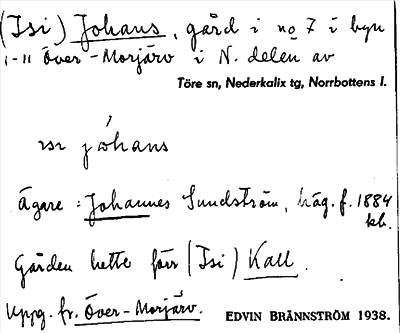 (Isi) Johans, gård i no 7 i byn
1-11 Över-Morjärv i N. delen av
Töre sn, Nederkalix tg, Norrbottens l.
johans
Ägare: Johannes Sundström, häg. f. 1884
kb.
Gården hette förr (Isi) Kall.
Uppg. fr. Över-Morjärv. EDVIN BRÄNNSTRÖM 1938.